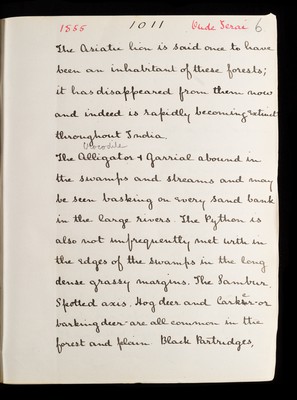 1555 1011 Oude Terai 6
The Asiatic lion is said once to have
been an inhabitant of these forests;
it has disappeared from them now
and indeed is rapidly becoming extinct
throughout India
Crocodile
The Alligator & Garrial abound in
the swamps and streams and may
be seen basking on every sand bank
in the large rivers. The Python is
also not unfrequently met with in
the edges of the swamps in the long
dense grassy margins. The Sambur,
Spotted axis, Hog deer and or
barking deer are all common in the
forest and plain. Black Partridges,